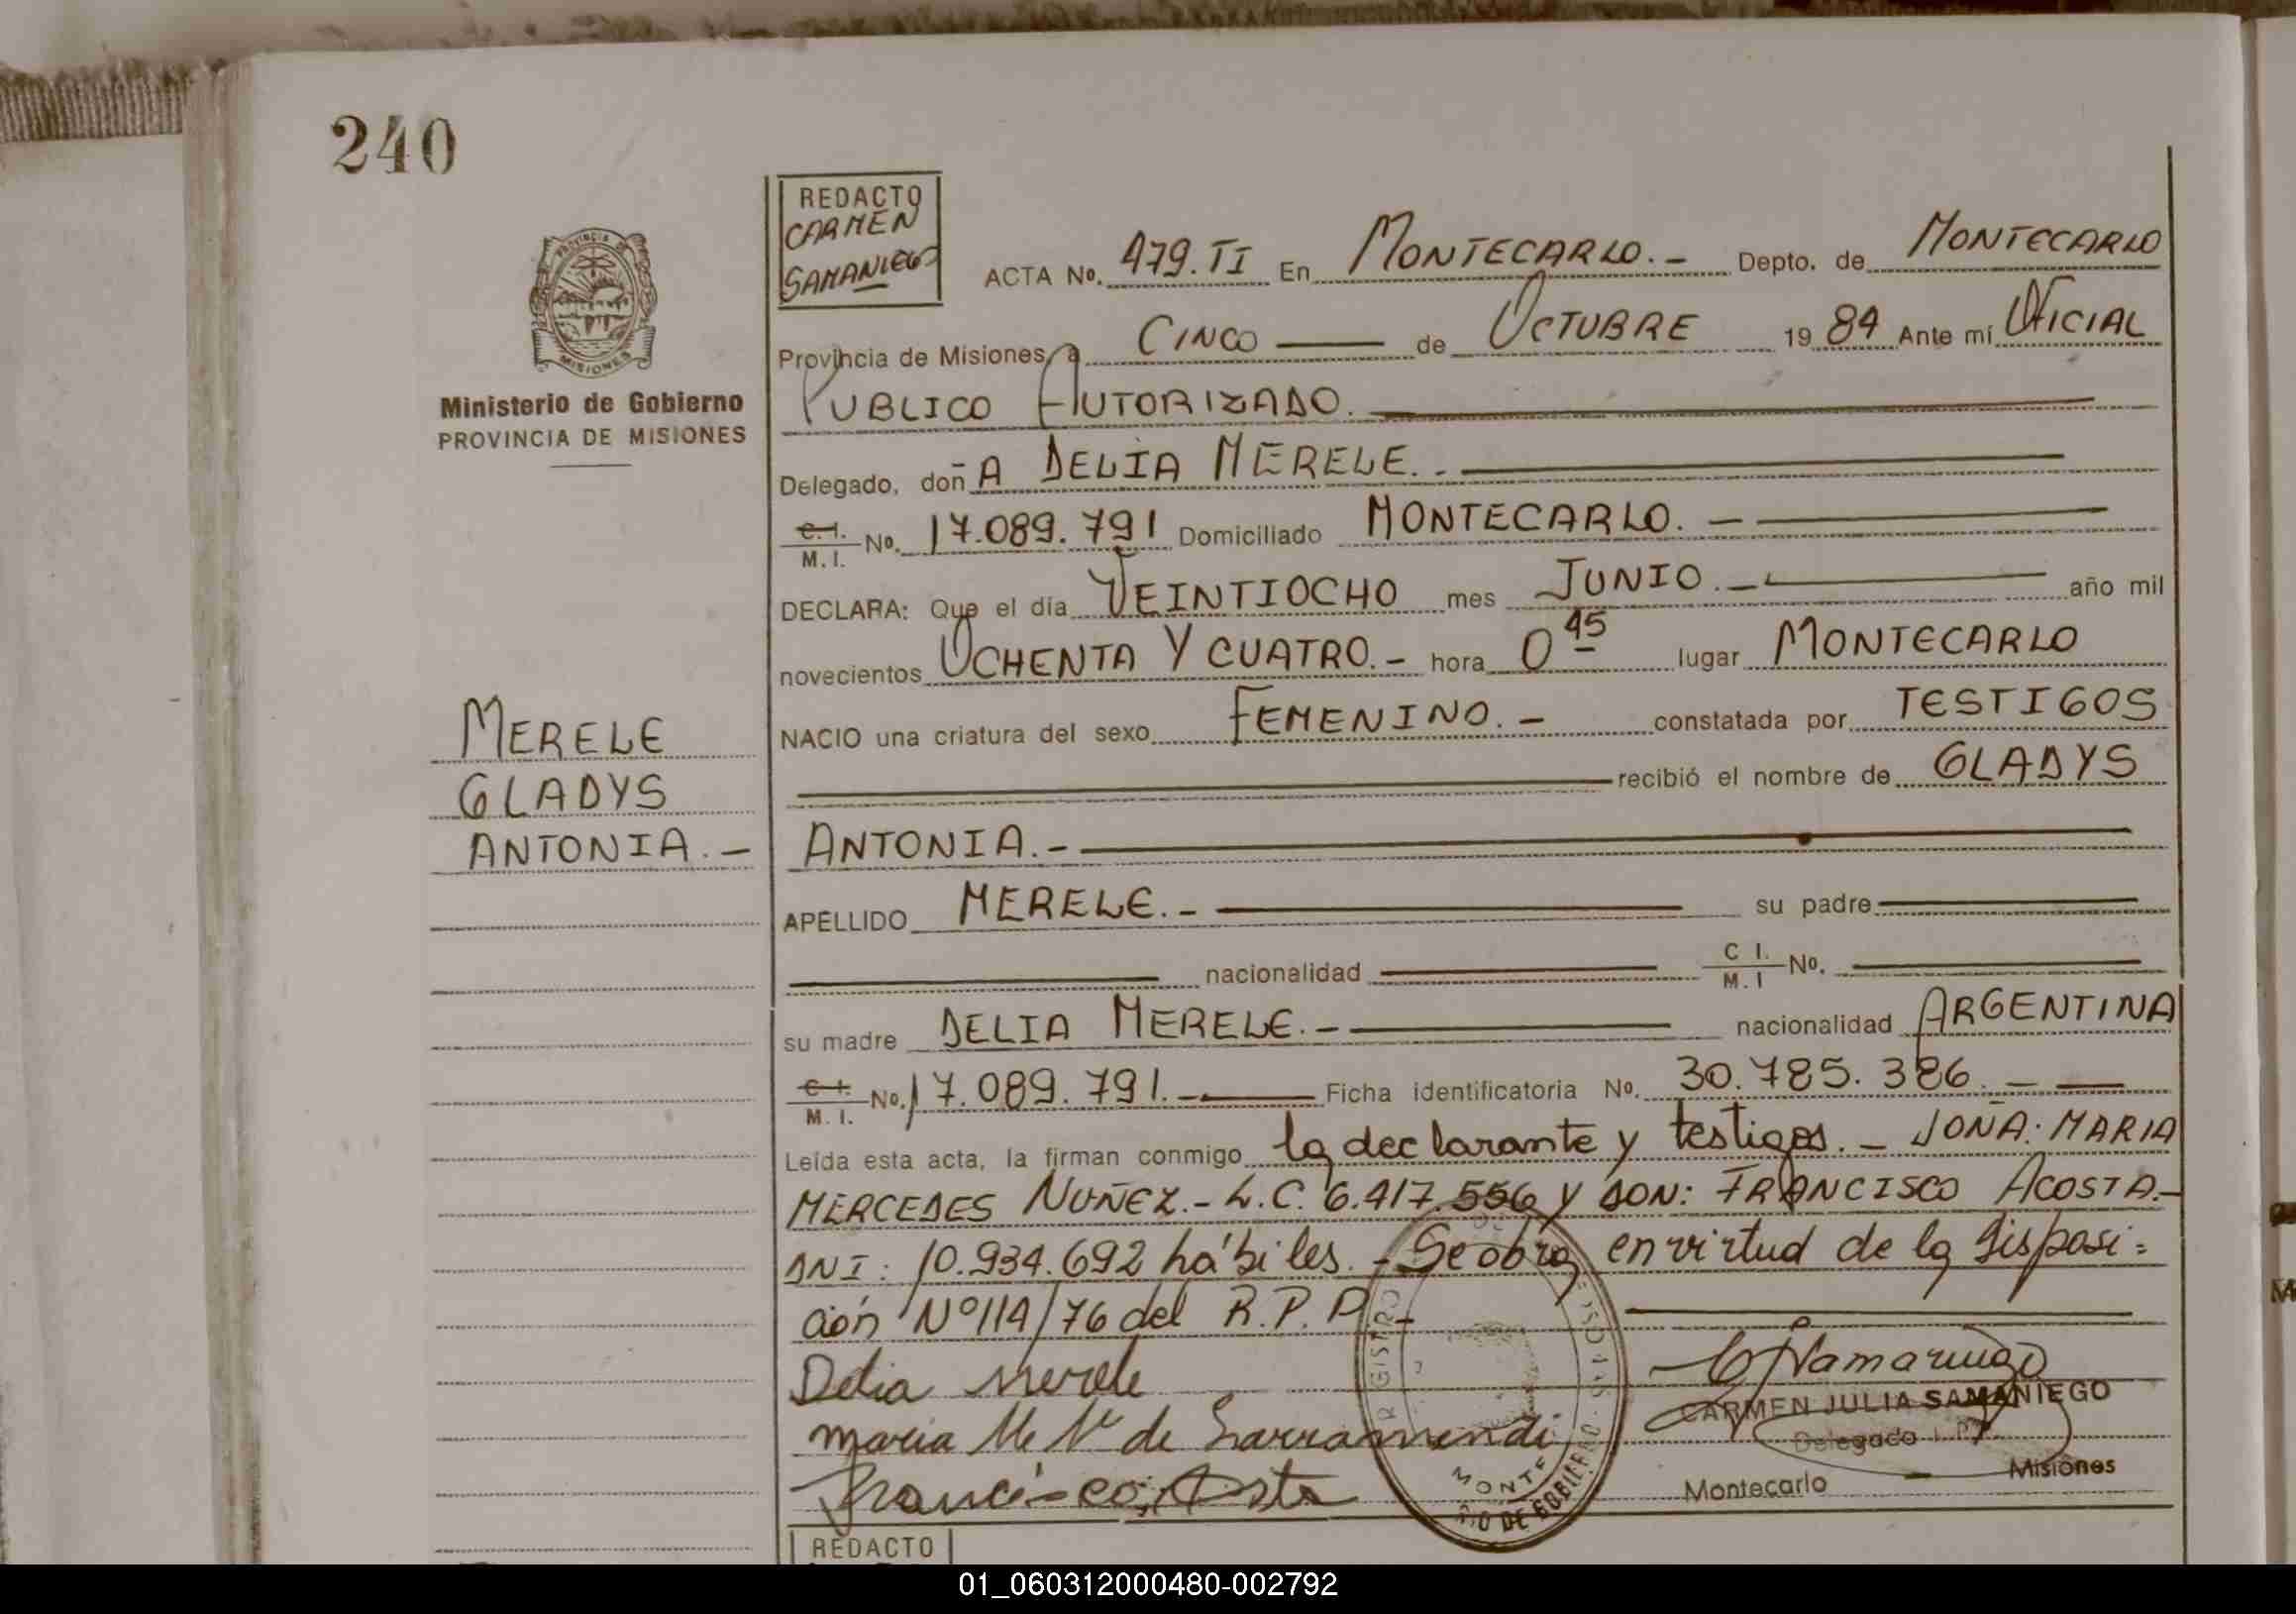 240
REDACTO
CARMEN
SAMANIEGO
ACTA No. 479.TI En MONTECARLO.- Depto. de MONTECARLO
Provincia de Misiones, a CINCO de OCTUBRE 1984 Ante mí OFICIAL
PUBLICO AUTORIZADO.
Delegado, doñA DELIA MERELE.-
C.I. M.I. No. 17.089.791 Domiciliado MONTECARLO.-
DECLARA: Que el día VEINTIOCHO mes JUNIO.- año mil
novecientos OCHENTA Y CUATRO.- hora 0 45 lugar MONTECARLO
NACIO una criatura del sexo FEMENINO.- constatada por TESTIGOS
recibió el nombre de GLADYS
ANTONIA.-
APELLIDO MERELE.- su padre
nacionalidad C I. M.I No.
su madre DELIA MERELE.- nacionalidad ARGENTINA
C.I. M.I. No. 17.089.791.- Ficha identificatoria No. 30.785.386.-
Leída esta acta, la firman conmigo la declarante y testigos.- DOÑA: MARIA
MERCEDES NUÑEZ.- L.C. 6.417.556 y DON: FRANCISCO ACOSTA.-
DNI: 10.934.692 hábiles.- Se obra en virtud de la disposi=
ción Nº 114/76 del R.P.P.-
Delia Merele
Maria M N de Larramendi
Francisco Acosta
CARMEN JULIA SAMANIEGO
Delegado
Montecarlo - Misiones
REGISTRO
MONTE
RIO DE GOBIERNO
PROVINCIA DE
MISIONES
Ministerio de Gobierno
PROVINCIA DE MISIONES
MERELE
GLADYS
ANTONIA.-
REDACTO
01_060312000480-002792